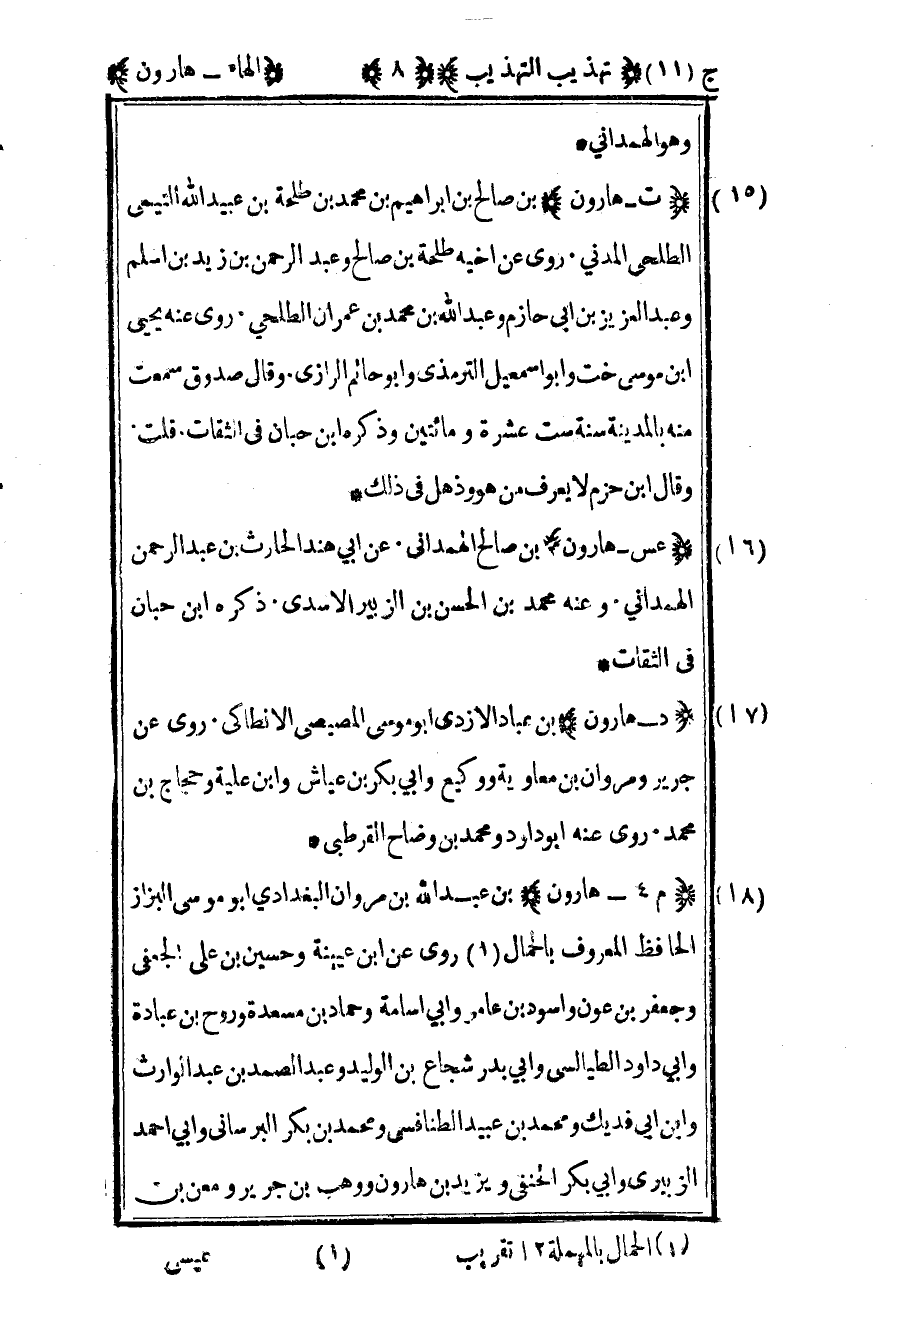 ج (١١) ﴿ تهذيب التهذيب ﴾ ﴿ ٨ ﴾ ﴿ الهاء ــ هارون ﴾
وهو الهمداني *
(١٥) ﴿ ت ــ هارون ﴾ بن صالح بن ابراهيم بن محمد بن طلحة بن عبيد الله التيمى
الطلحى المدني . روى عن اخيه طلحة بن صالح وعبد الرحمن بن زيد بن اسلم
وعبد العزيز بن ابى حازم وعبد الله بن محمد بن عمران الطلحي . روى عنه يحيى
ابن موسى خت وابو اسمعيل الترمذى وابو حاتم الرازى . وقال صدوق سمعت
منه بالمدينة سنة ست عشرة و مائتين وذكره ابن حبان فى الثقات . قلت .
وقال ابن حزم لا يعرف من هو وذهل فى ذلك *
(١٦) ﴿ عس ــ هارون ﴾ بن صالح الهمدانى . عن ابي هند الحارث بن عبد الرحمن
الهمداني . و عنه محمد بن الحسن بن الزبير الاسدى . ذكره ابن حبان
فى الثقات *
(١٧) ﴿ د ــ هارون ﴾ بن عباد الازدى ابو موسى المصيصى الانطاكى . روى عن
جرير ومروان بن معاوية ووكيع وابي بكر بن عياش وابن علية وحجاج بن
محمد . روى عنه ابو دارد ومحمد بن وضاح القرطبى *
(١٨) ﴿ م ٤ ــ هارون ﴾ بن عبد الله بن مروان البغدادي ابو موسى البزاز
الحافظ المعروف بالحمال (١) روى عن ابن عيينة وحسين بن على الجعفى
وجعفر بن عون واسود بن عامر وابي اسامة وحماد بن مسعدة وروح بن عبادة
وابي داود الطيالسى وابي بدر شجاع بن الوليد وعبد الصمد بن عبد الوارث
وابن ابى فديك ومحمد بن عبيد الطنافسى ومحمد بن بكر البرسانى وابي احمد
الزبيرى وابي بكر الحنفى ويزيد بن هارون ووهب بن جرير و معن بن
(١) الحمال بالمهملة ١٢ تقريب (١) عيسى